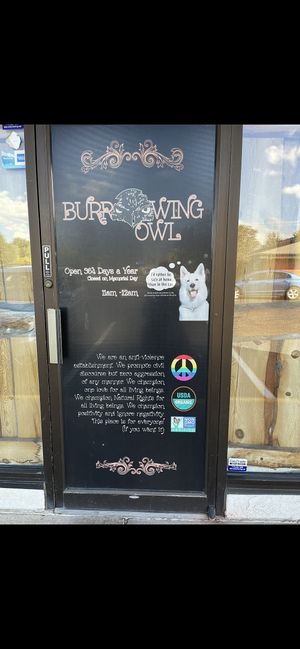 BURROWING
OWL
PULL
Open 364 Days a Year
Closed on Memorial Day
11am -12am
I'd rather be
We are an anti-violence
establishment. We promote civil
discourse but zero aggression
of any manner. We champion
one love for all living beings.
We champion Natural Rights for
all living beings. We champion
positivity and ignore negativity.
This place is for everyone!
(If you want it)
USDA
ORGANIC